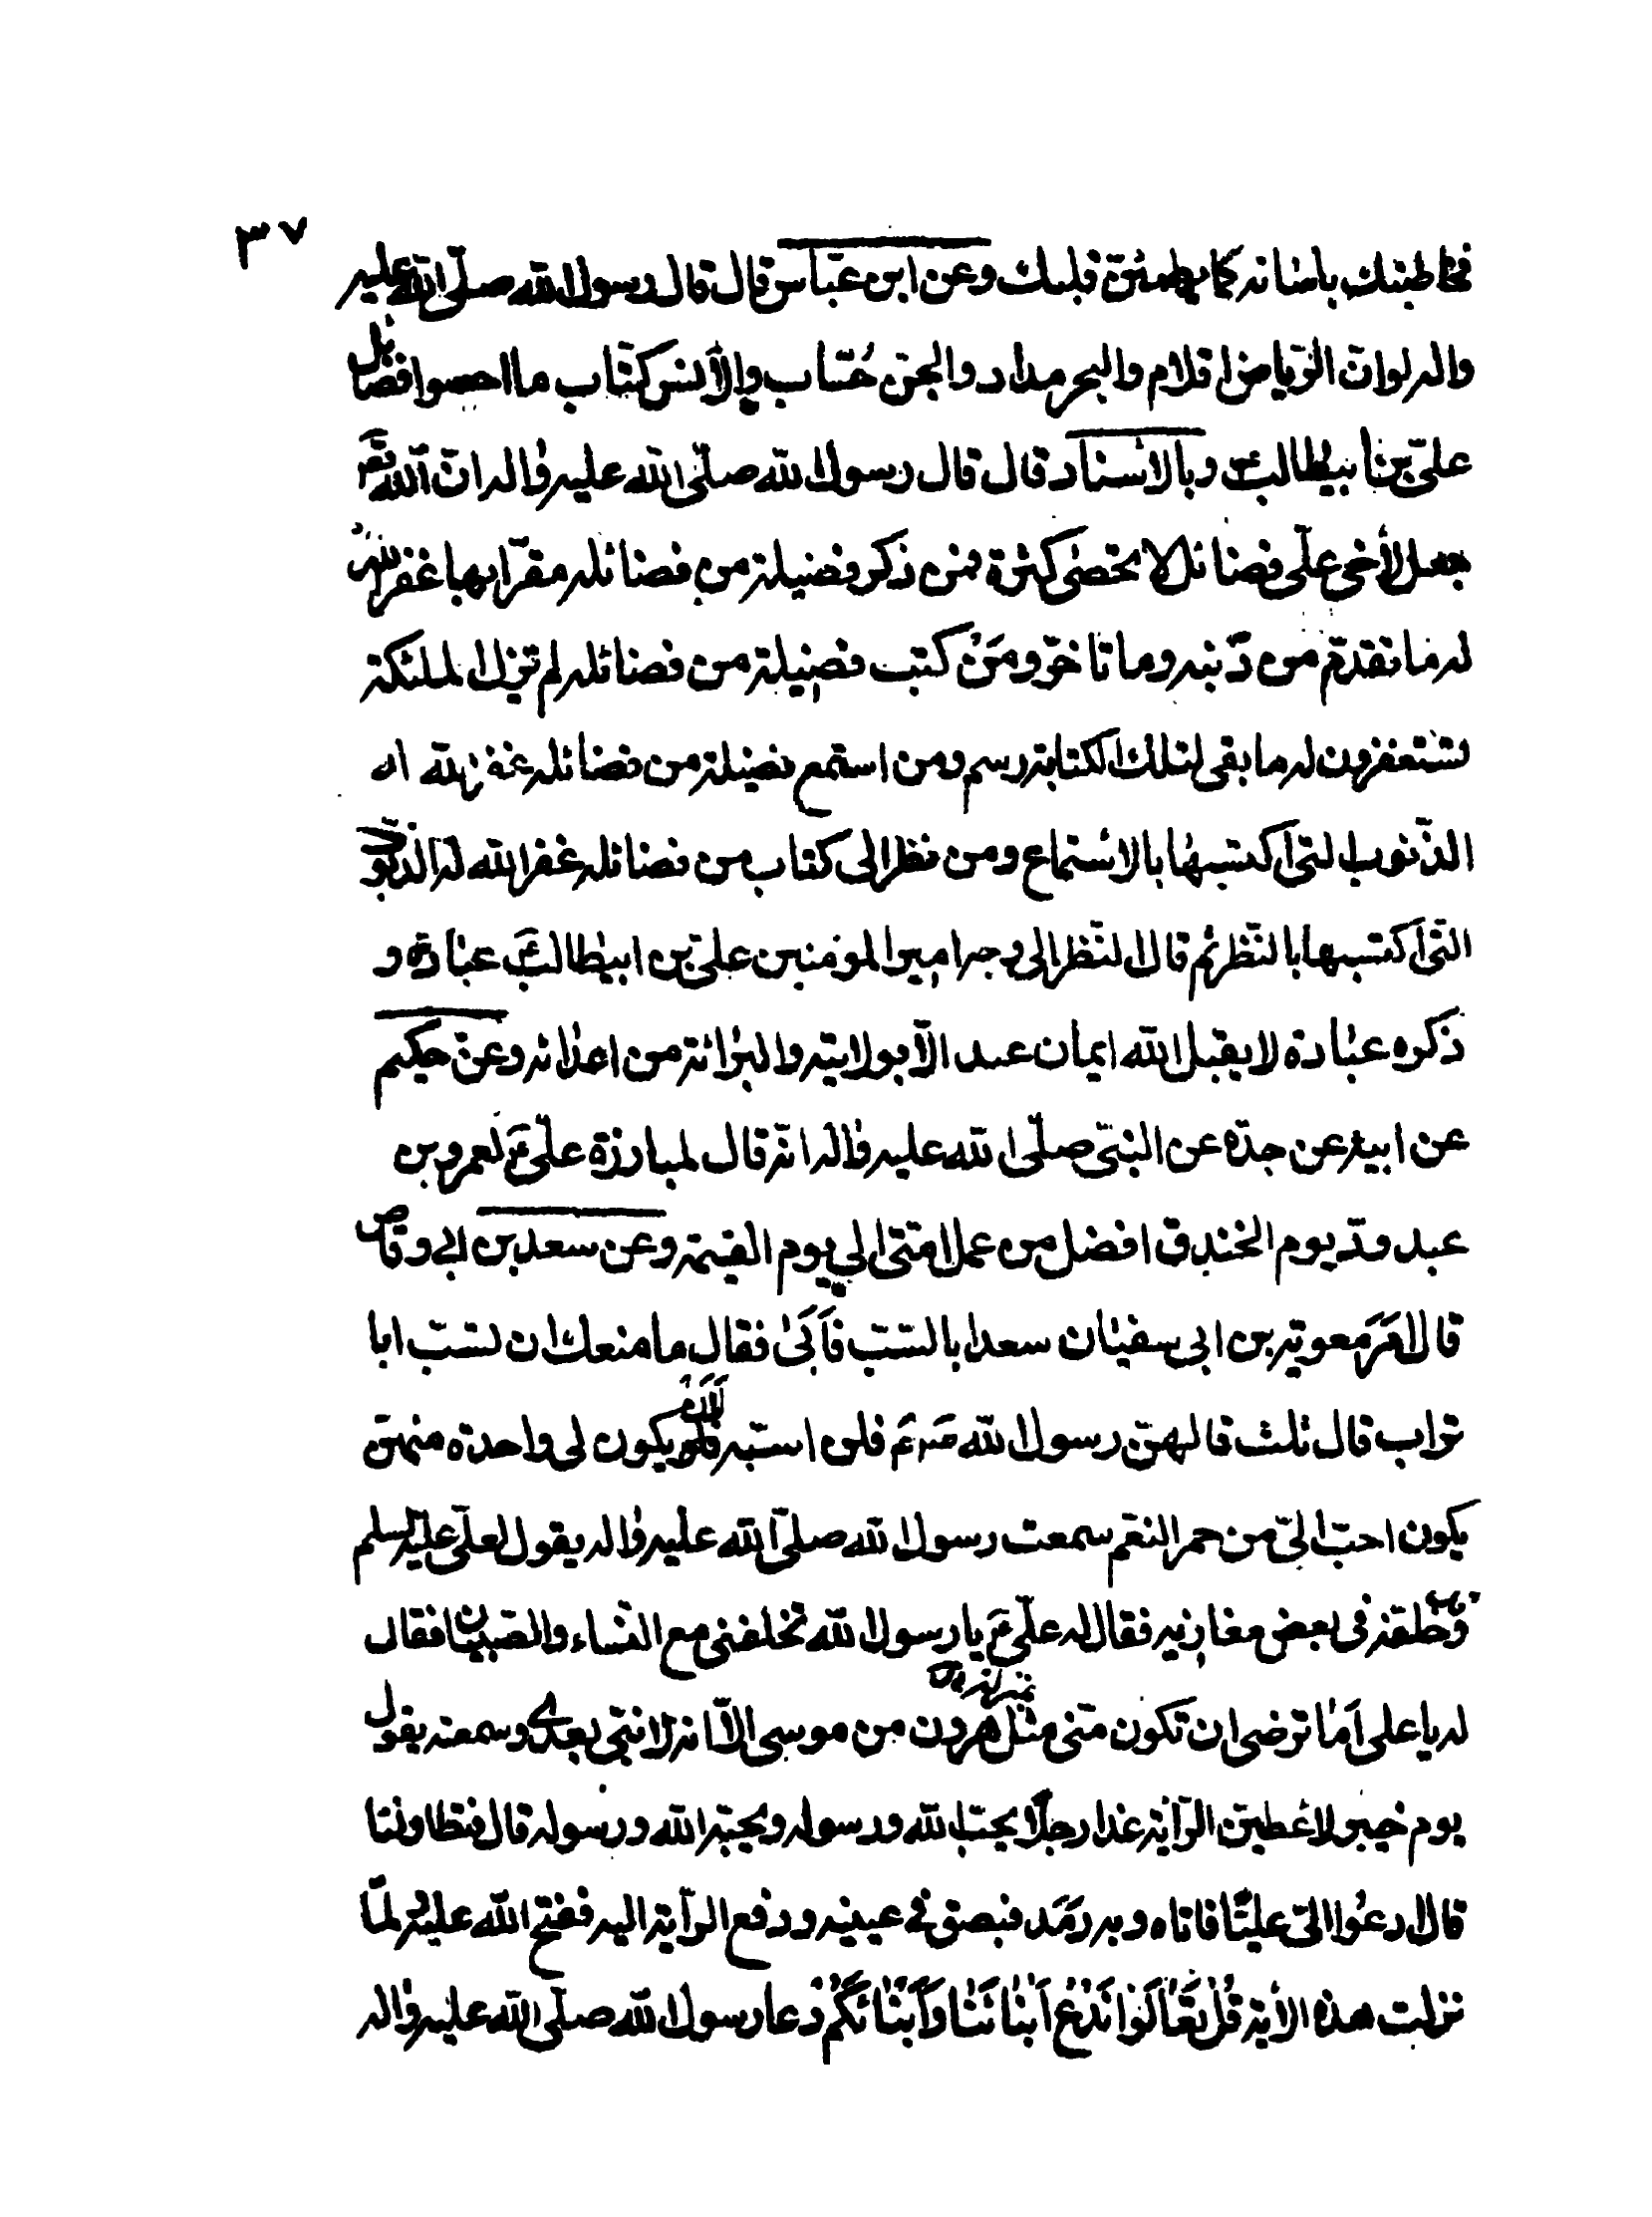 ٣٧
فخاطبتك بلسانه كما يطمئنّ قلبك وعن ابن عبّاس قال قال رسول الله صلّى الله عليه
واله لو انّ الرّياض اقلام والبحر مداد والجنّ حُسّاب والأنس كتّاب ما احصوا فضايل
علىّ بن ابيطالبؑ وبالاسناد قال قال رسول الله صلّى الله عليه واله انّ الله تعَ
جعل لأخى علىّ فضائل لا تحصى كثرة فمن ذكر فضيلة من فضائله مقرّا بها غفر الله
له ما تقدّم من ذنبه وما تاخّر ومَنْ كتب فضيلة من فضائله لم تزل الملئكة
تستغفرون له ما بقى لتلك الكتابة رسم ومن استمع فضيلة من فضائله غفر الله له
الذّنوب التى اكتسبها بالاستماع ومن نظر الى كتاب من فضائله غفر الله له الذنوب
التى اكتسبها بالنّظر ثم قال النّظر الى وجه امير المؤمنين علىّ بن ابيطالبؑ عبادة و
ذكره عبادة لا يقبل الله ايمان عبد الّا بولايته والبرائة من اعدائه وعن حكيم
عن ابيه عن جدّه عن النبىّ صلّى الله عليه واله انّه قال لمبارزة علىّ عَ لعمرو بن
عبد ودّ يوم الخندق افضل من عمل امتى الى يوم القيمة وعن سعد بن ابى وقاص
قال امَرَ معوية بن ابى سفيان سعدا بالسّبّ فَاَبَىٰ فقال ما منعك ان تسبّ ابا
تراب قال ثلث قالهنّ رسول الله صَ عَ فلن اسبّه لَاَنْ يكون لى واحدة منهنّ
يكون احبّ الىّ من حمر النعَم سمعت رسول الله صلّى الله عليه واله يقول لعلىّ عليه السلم
وخلفه فى بعض مغازيه فقال له علىّ عَ يا رسول الله تخلفنى مع النساء والصّبيان فقال
له يا على اَما ترضى ان تكون منّى مثل بمنزلة هرون من موسى الّا انه لا نبىّ بعدى وسمعته يقول
يوم خيبر لاعطينّ الرّاية غدا رجلًا يحبّ الله ورسوله ويحبّه الله ورسوله قال فتطاولنا
قال ادعُوا الىّ عليًّا فاتاه وبه رَمَد فبصق فى عينيه ودفع الرّاية اليه ففتح الله عليه ولمّا
نزلت هذه الأية قُلْ تَعَالَوْا نَدْعُ اَبْنَاءَنَا وَاَبْنَائَكُمْ دعا رسول الله صلّى الله عليه واله